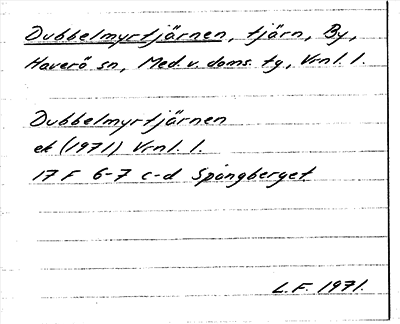 Dubbelmyrtjärnen, tjärn, By,
Haverö sn, Med. v. doms. tg, Vrnl. l.
Dubbelmyrtjärnen
ek (1971) Vrnl. l.
17 F 6-7 c-d Spångberget
L.F. 1971.